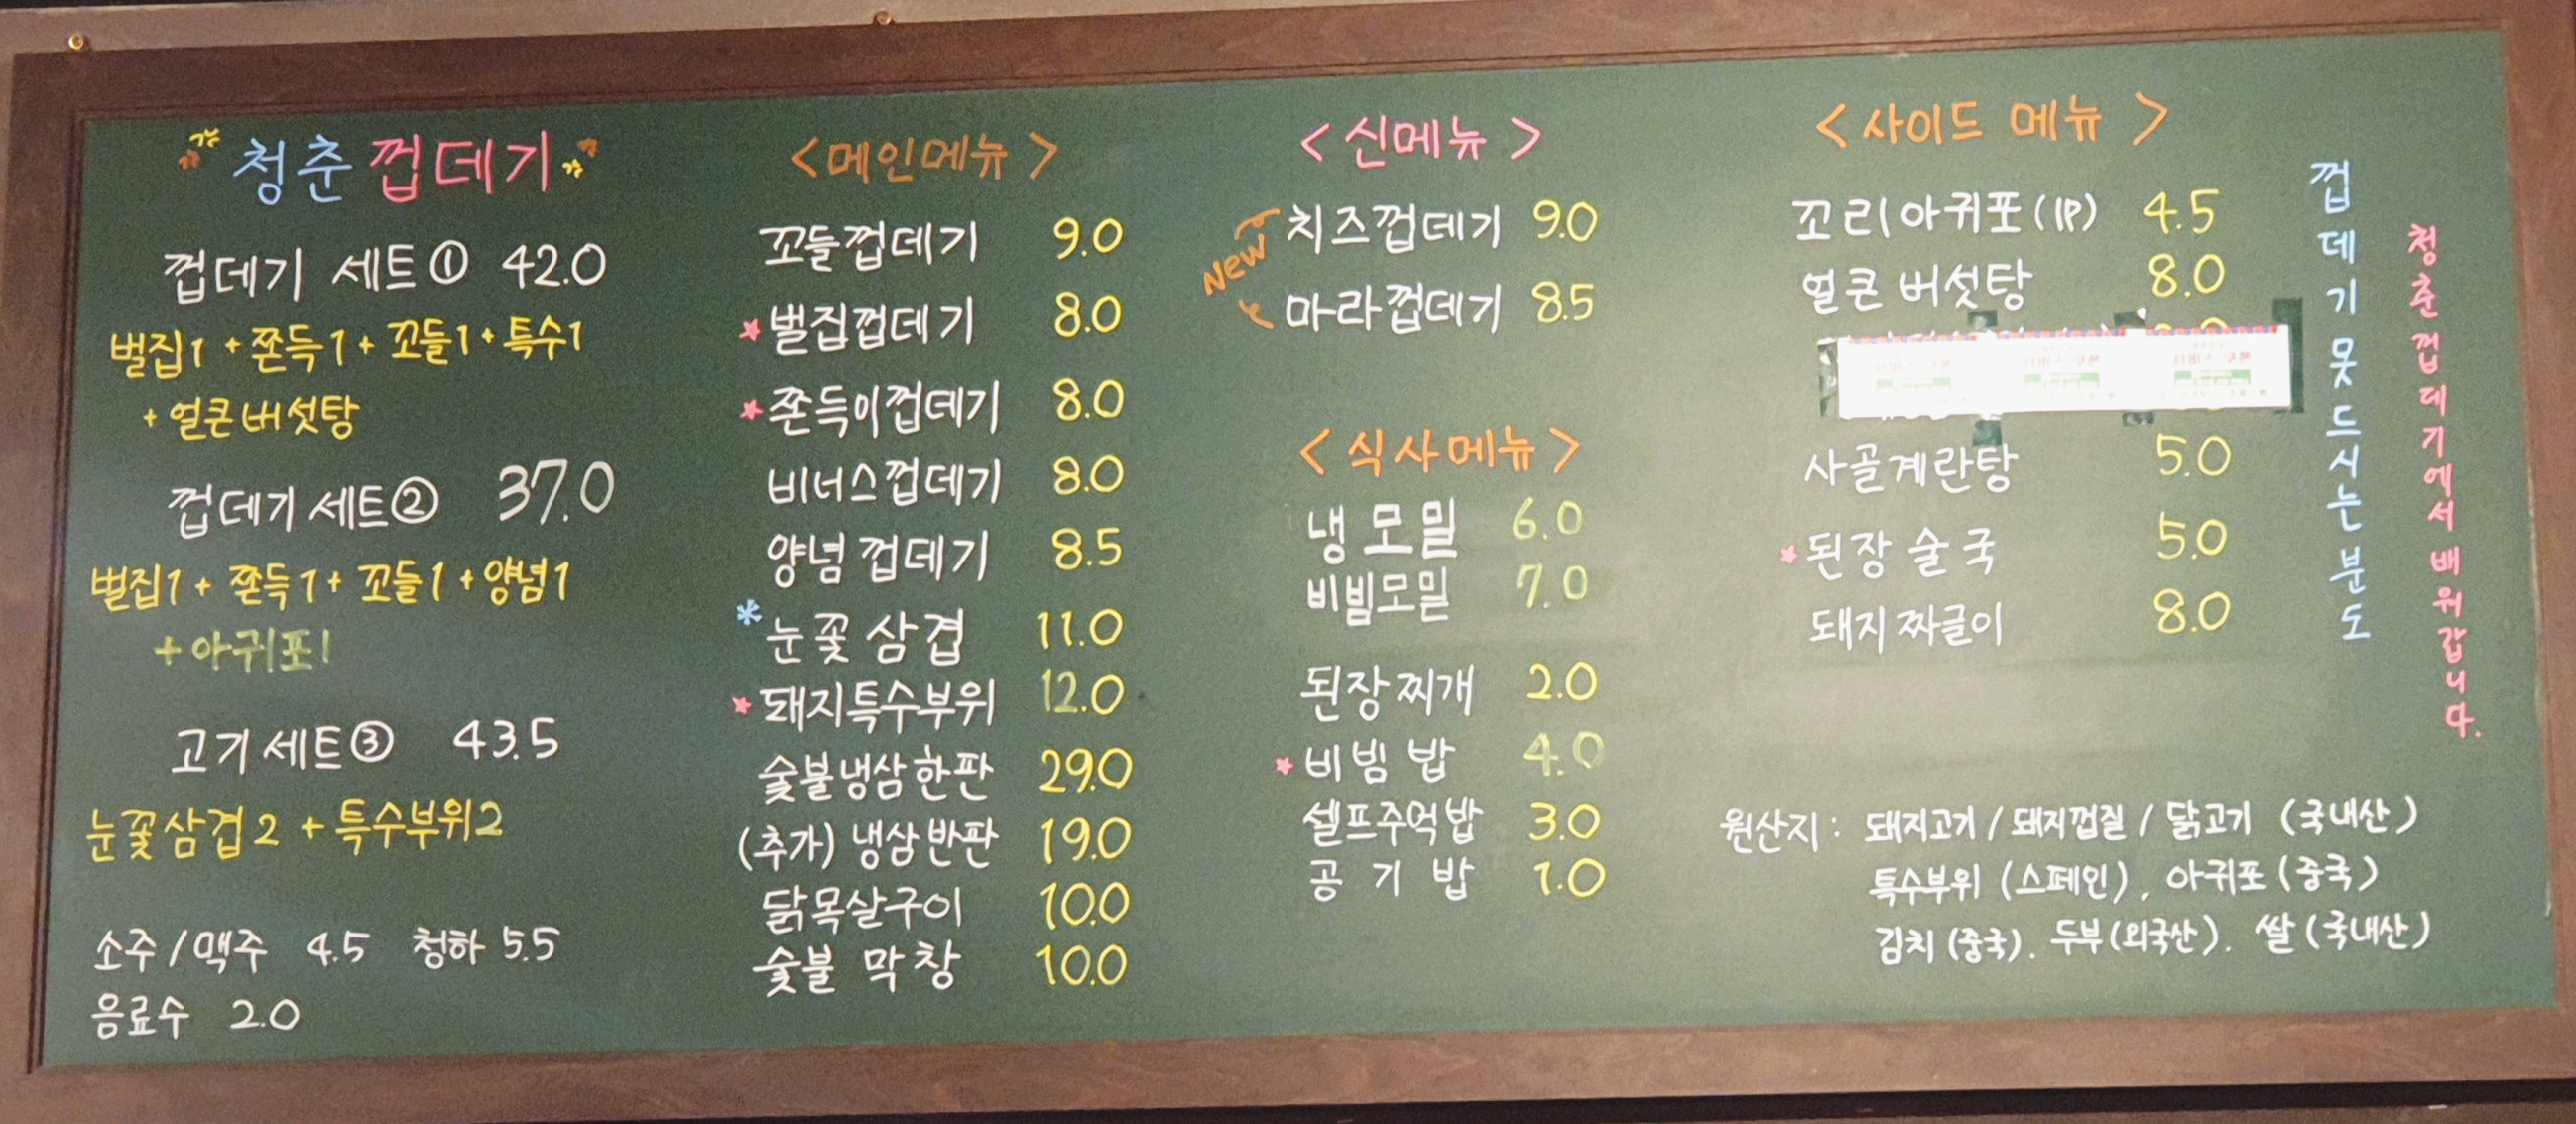 청춘 껍데기
껍데기 세트① 42.0
벌집1 + 쫀득1 + 꼬들1 + 특수1
+ 얼큰버섯탕
껍데기 세트② 37.0
벌집1 + 쫀득1 + 꼬들1 + 양념1
+ 아귀포1
고기세트③ 43.5
눈꽃삼겹2 + 특수부위2
소주/맥주 4.5 청하 5.5
음료수 2.0
<메인메뉴>
꼬들껍데기 9.0
벌집껍데기 8.0
쫀득이껍데기 8.0
비너스껍데기 8.0
양념껍데기 8.5
눈꽃 삼겹 11.0
돼지특수부위 12.0
숯불냉삼한판 29.0
(추가) 냉삼반판 19.0
닭목살구이 10.0
숯불 막창 10.0
<신메뉴>
New
치즈껍데기 9.0
마라껍데기 8.5
<식사메뉴>
냉모밀 6.0
비빔모밀 7.0
된장찌개 2.0
비빔밥 4.0
셀프주먹밥 3.0
공기밥 1.0
<사이드 메뉴>
꼬리아귀포(1P) 4.5
얼큰 버섯탕 8.0
사골계란탕 5.0
된장술국 5.0
돼지짜글이 8.0
껍데기못드시는분도
청춘껍데기에서 배워갑니다.
원산지 : 돼지고기 / 돼지껍질 / 닭고기 (국내산)
특수부위 (스페인), 아귀포 (중국)
김치 (중국). 두부 (외국산). 쌀 (국내산)